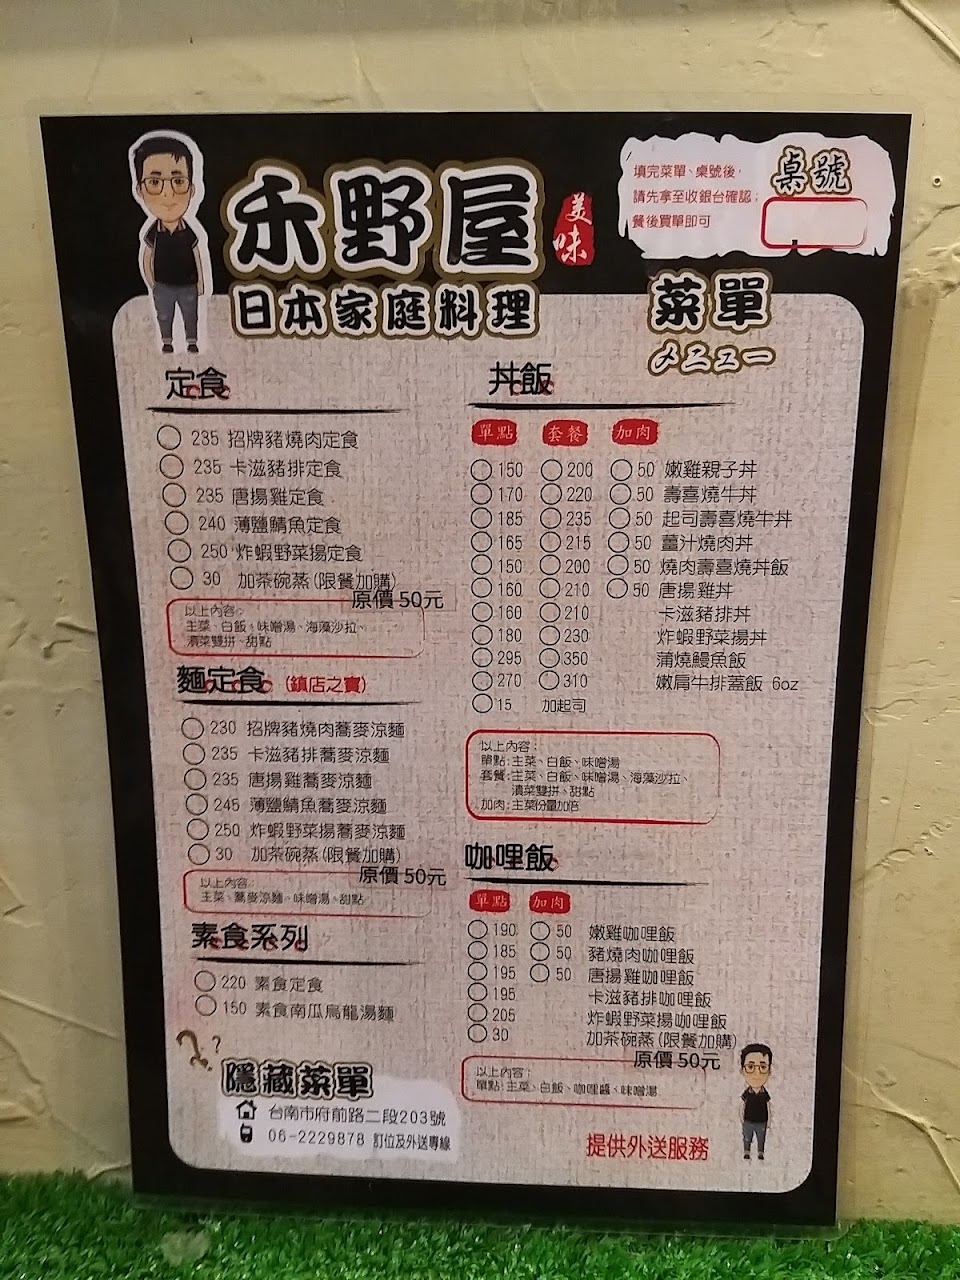 禾野屋
美味
日本家庭料理
填完菜單、桌號後，
請先拿至收銀台確認；
餐後買單即可
桌號
菜單
メニュー
定食
235 招牌豬燒肉定食
235 卡滋豬排定食
235 唐揚雞定食
240 薄鹽鯖魚定食
250 炸蝦野菜揚定食
30 加茶碗蒸(限餐加購)
原價50元
以上內容：
主菜、白飯、味噌湯、海藻沙拉、
漬菜雙拼、甜點
麵定食 (鎮店之寶)
230 招牌豬燒肉蕎麥涼麵
235 卡滋豬排蕎麥涼麵
235 唐揚雞蕎麥涼麵
245 薄鹽鯖魚蕎麥涼麵
250 炸蝦野菜揚蕎麥涼麵
30 加茶碗蒸(限餐加購)
原價50元
以上內容：
主菜、蕎麥涼麵、味噌湯、甜點
素食系列
220 素食定食
150 素食南瓜烏龍湯麵
?
隱藏菜單
台南市府前路二段203號
06-2229878 訂位及外送專線
丼飯
單點 套餐 加肉
150 200 50 嫩雞親子丼
170 220 50 壽喜燒牛丼
185 235 50 起司壽喜燒牛丼
165 215 50 薑汁燒肉丼
150 200 50 燒肉壽喜燒丼飯
160 210 50 唐揚雞丼
160 210 卡滋豬排丼
180 230 炸蝦野菜揚丼
295 350 蒲燒鰻魚飯
270 310 嫩肩牛排蓋飯 6oz
15 加起司
以上內容：
單點：主菜、白飯、味噌湯
套餐：主菜、白飯、味噌湯、海藻沙拉、
漬菜雙拼、甜點
加肉：主菜份量加倍
咖哩飯
單點 加肉
190 50 嫩雞咖哩飯
185 50 豬燒肉咖哩飯
195 50 唐揚雞咖哩飯
195 卡滋豬排咖哩飯
205 炸蝦野菜揚咖哩飯
30 加茶碗蒸(限餐加購)
原價50元
以上內容：
單點：主菜、白飯、咖哩醬、味噌湯
提供外送服務